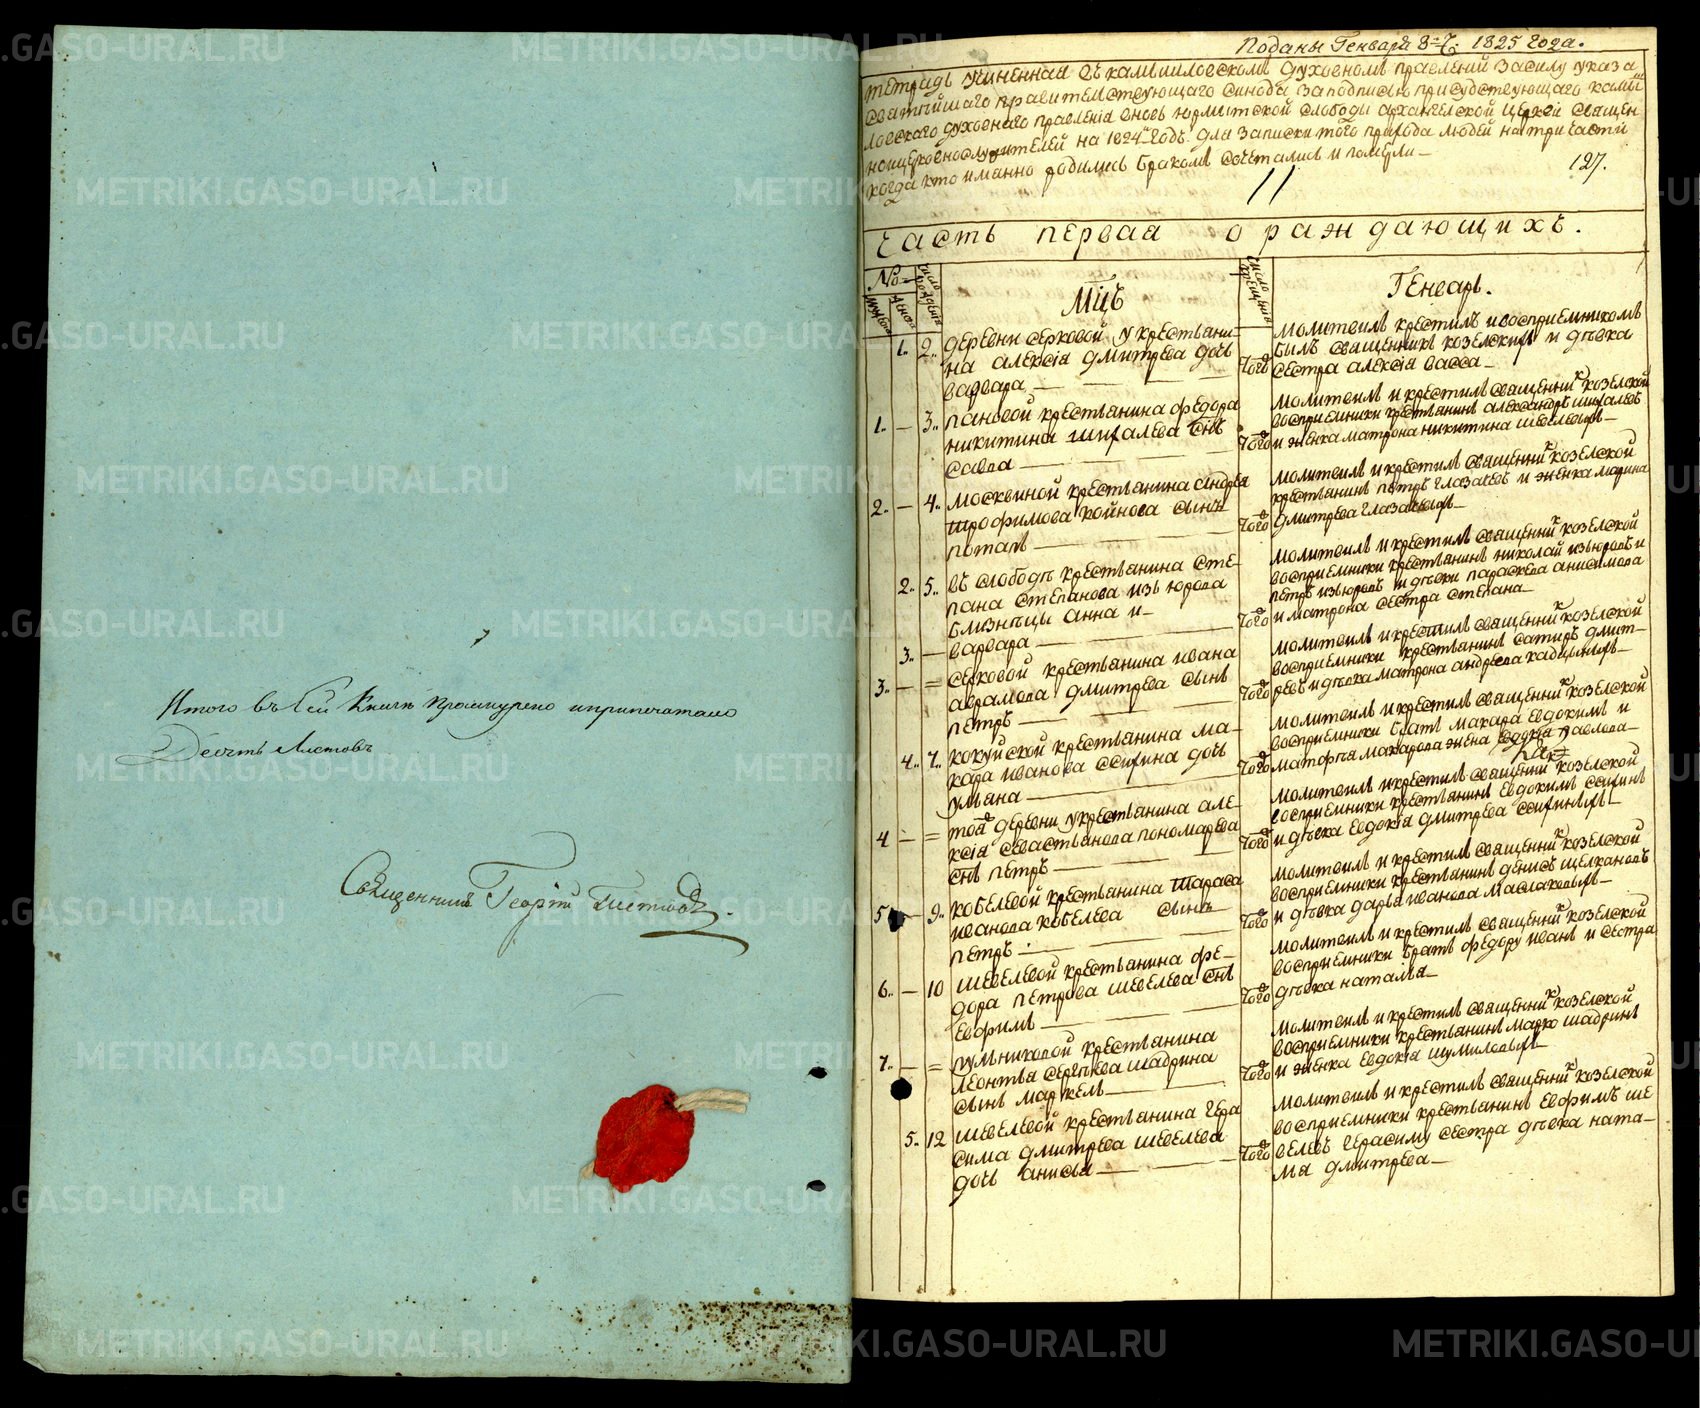 Итого въ сей книгѣ прошнурено и припечатано
Десять Листовъ
Священникъ Георгій
Поданы Генваря 8-г. 1825 года.
тетрадь учиненная въ камышловскомъ духовномъ правленіи в силу указа
святѣйшаго правительствующаго синода за подписью присудствующаго камы
ловскаго духовнаго правленія вновь юрмытской слободы архангелской церкви священ
ноцерковнослужителей на 1824й годъ для записки того прихода людей на три части
когда кто имянно родились бракомъ сочетались и померли
127.
11
часть первая о раждающихъ.
№
мужеска
женска
число рожденія
Мцъ
число крещенія
Генварь.
1. 2. деревни серковой у крестьяни-
на алексія дмитрева дочь
варвара
того
молитвилъ крестилъ и восприемникомъ
былъ священникъ козелский и дѣвка
сестра алексія васса
1. 3. пановой крестьянина федора
никитина шихалева снъ
савва
того
молитвилъ и крестилъ священникъ козелской
восприемники крестьянинъ александръ шихалевъ
и женка матрона никитина шевелевыхъ
2. 4. москвиной крестьянина андрея
трофимова койнова сынъ
потапъ
того
молитвилъ и крестилъ священникъ козелской
крестьянинъ петръ глазачевъ и женка марина
дмитрева глазачевыхъ
2. 5. въ слободѣ крестьянина сте-
пана степанова изъюрова
близнецы анна и
3. варвара
того
молитвилъ и крестилъ священникъ козелской
восприемники крестьянинъ николай изъюровъ и
петръ изъюровъ и дѣвки параскева анисимова
и матрона сестра степана
3. = серковой крестьянина ивана
аврамова дмитрева сынъ
петръ
того
молитвилъ и крестилъ священникъ козелской
восприемники крестьянинъ сатиръ дмит-
ревъ и дѣвка матрона андреева кадцыныхъ
4. 7. кокуйской крестьянина ма-
кара иванова ссихина дочь
ульяна
того
молитвилъ и крестилъ священникъ козелской
восприемники братъ макара евдокимъ и
матфѣя макарова жена евдокія павлова
4 = тояж деревни у крестьянина але-
ксія севастьянова пономарева
снъ петръ
того
молитвилъ и крестилъ священникъ козелской
восприемники крестьянинъ евдокимъ ссихинъ
и дѣвка евдокія дмитрева ссихиныхъ
5 9. кобелевой крестьянина тараса
иванова кобелева сынъ
петръ
того
молитвилъ и крестилъ священникъ козелской
восприемники крестьянинъ денисъ щелкановъ
и дѣвка дарья иванова маслаковыхъ
6. 10 шевелевой крестьянина фе-
дора петрова шевелева снъ
евфимъ
того
молитвилъ и крестилъ священникъ козелской
восприемники братъ федору иванъ и сестра
дѣвка наталья
7. = пульниковой крестьянина
леонтья сергѣева шадрина
сынъ маркелъ
того
молитвилъ и крестилъ священникъ козелской
восприемники крестьянинъ марко шадринъ
и женка евдокія шумиловыхъ
5. 12 шевелевой крестьянина гера
сима дмитрева шевелева
дочь анисья
того
молитвилъ и крестилъ священникъ козелской
восприемники крестьянинъ евфимъ ше
велевъ герасиму сестра дѣвка ната-
лья дмитрева
METRIKI.GASO-URAL.RU